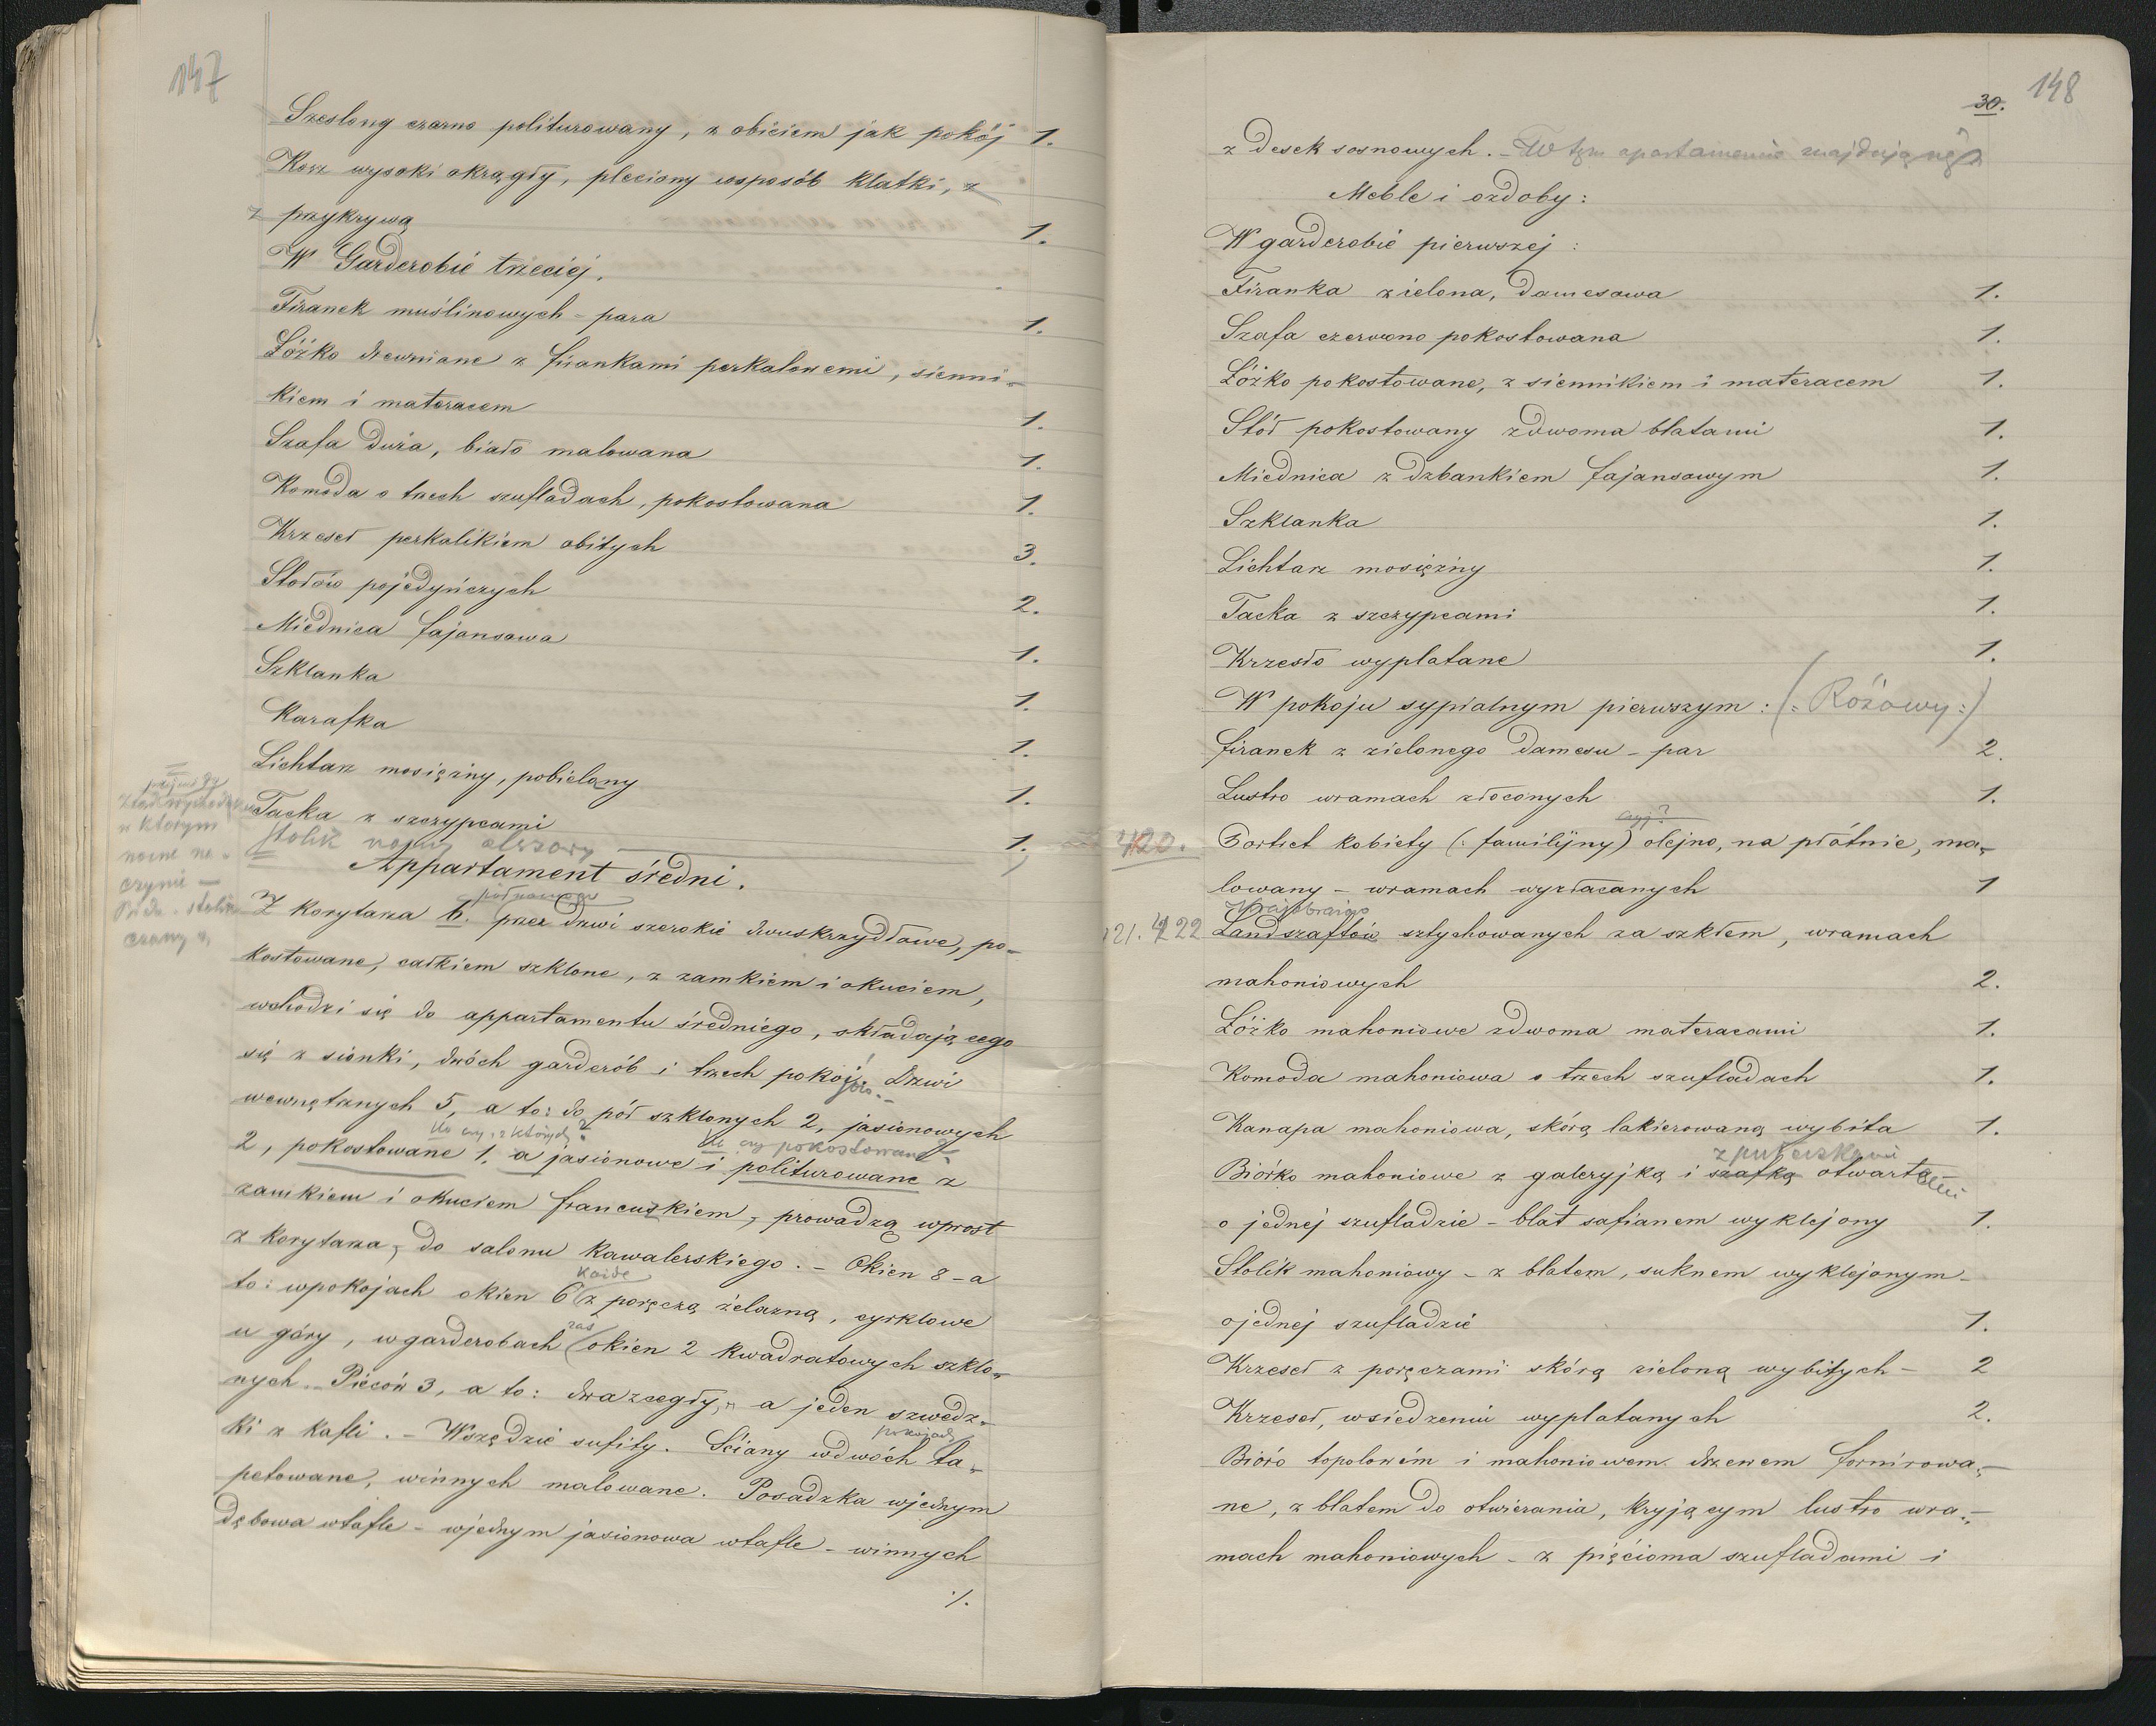 147
Szeslong czarno politurowany, z obiciem jak pokój 1.
Kosz wysoki okrągły, pleciony wsposób klatki, z
z przykrywą 1.
W Garderobie trzeciej.
Firanek muślinowych - para 1.
Łóżko drewniane z firankami perkalowemi, sienni-
kiem i materacem 1.
Szafa duża, biało malowana 1.
Komoda o trzech szufladach, pokostowana 1.
Krzeseł perkalikiem obitych 3.
Stołów pojedyńczych 2.
Miednica fajansowa 1.
Szklanka 1.
Karafka 1.
Lichtarz mosiężny, pobielany 1.
Tacka z szczypcami 1.
stolik nocny olszowy
w którym
nocne na-
czynie —
stolik
czarny
Appartament średni.
Z korytarza b. przez drzwi szerokie dwuskrzydłowe, po-
kostowane, całkiem szklone, z zamkiem i okuciem,
wchodzi się do appartamentu średniego, składającego
się z sionki, dwóch garderób i trzech pokoi. Drzwi
wewnętrznych 5, a to: do pół szklonych 2, jasionowych
ile czy z których? ile czy pokostowane?
2, pokostowane 1, a jasionowe i politurowane z
zamkiem i okuciem francuzkiem, prowadzą wprost
z korytarza, do salonu kawalerskiego. - Okien 8 - a
każde
to: wpokojach okien 6 z poręczą żelazną, cyrklowe
zaś
u góry, wgarderobach okien 2 kwadratowych szklo-
nych. Pieców 3, a to: dwa zcegły, a jeden szwedz-
pokojach
ki z kafli. - Wszędzie sufity. Ściany wdwóch ta-
petowane, winnych malowane. Posadzka wjednym
dębowa wtafle - wjednym jasionowa wtafle - winnych
./.
148
30.
z desek sosnowych. - W tym apartamencie znajdują się
Meble i ozdoby:
W garderobie pierwszej:
Firanka zielona, damesowa 1.
Szafa czerwono pokostowana 1.
Łóżko pokostowane, z siennikiem i materacem 1.
Stół pokostowany zdwoma blatami 1.
Miednica z dzbankiem fajansowym 1.
Szklanka 1.
Lichtarz mosiężny 1.
Tacka z szczypcami 1.
Krzesło wyplatane 1.
W pokoju sypialnym pierwszym: (: Różowy :)
firanek z zielonego damesu - par 2.
Lustro wramach złoconych 1.
czyj?
420. Portret kobiety (: familijny) olejno, na płótnie, ma-
lowany - wramach wyzłacanych 1
Krajobrazów
421. 422 Landszaftów sztychowanych za szkłem, wramach
mahoniowych 2.
Łóżko mahoniowe zdwoma materacami 1.
Komoda mahoniowa o trzech szufladach 1.
Kanapa mahoniowa, skórą lakierowaną wybita 1.
z puteczkami
Biórko mahoniowe z galeryjką i szafką otwartemi
o jednej szufladzie - blat safianem wyklejony 1.
Stolik mahoniowy - z blatem, suknem wyklejonym -
ojednej szufladzie 1.
Krzeseł z poręczami skórą zieloną wybitych - 2
Krzeseł, wsiedzeniu wyplatanych 2.
Bióro topolowém i mahoniowem drzewem fornirowa-
ne, z blatem do otwierania, kryjącym lustro wra-
mach mahoniowych - z pięcioma szufladami i